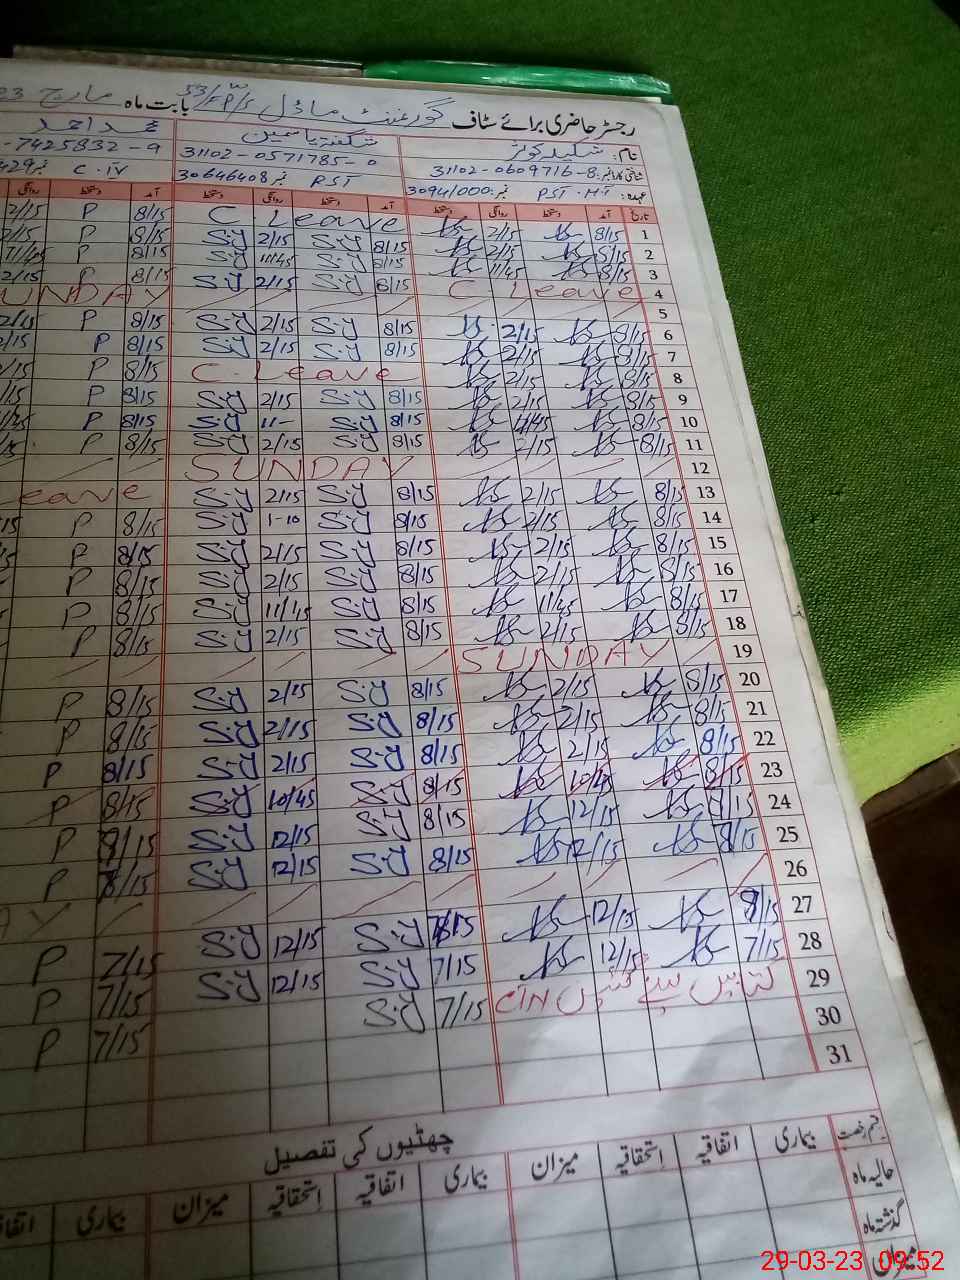 رجسٹر حاضری برائے سٹاف گورنمنٹ ماڈل 53/FP/S بابت ماہ مارچ 23
نام: شکیلہ کوثر شگفتہ یاسمین محمد احمد
شناختی کارڈ نمبر: 31102-0609716-8 31102-0571785-0 -7425832-9
عہدہ: PST. HT نمبر: 3094/000 PST نمبر 30646408 C.IV نمبر 429
تاریخ آمد دستخط روانگی دستخط آمد دستخط روانگی دستخط آمد دستخط روانگی
1 8/15 2/15 C Leave 8/15 P 2/15
2 8/15 2/15 8/15 S.Y 2/15 S.Y 8/15 P 2/15
3 8/15 11/45 8/15 S.Y 11/45 S.Y 8/15 P 11/45
4 C Leave 8/15 S.Y 2/15 S.Y 8/15 P 2/15
5 SUNDAY
6 8/15 2/15 8/15 S.Y 2/15 S.Y 8/15 P 2/15
7 8/15 2/15 8/15 S.Y 2/15 S.Y 8/15 P 2/15
8 8/15 2/15 C. Leave 8/15 P /15
9 8/15 2/15 8/15 S.Y 2/15 S.Y 8/15 P /15
10 8/15 11/45 8/15 S.Y 11- S.Y 8/15 P /45
11 8/15 2/15 8/15 S.Y 2/15 S.Y 8/15 P /15
12 SUNDAY
13 8/15 2/15 8/15 S.Y 2/15 S.Y eave
14 8/15 2/15 8/15 S.Y 1-10 S.Y 8/15 P /15
15 8/15 2/15 8/15 S.Y 2/15 S.Y 8/15 P
16 8/15 2/15 8/15 S.Y 2/15 S.Y 8/15 P
17 8/15 11/45 8/15 S.Y 11/45 S.Y 8/15 P
18 8/15 2/15 8/15 S.Y 2/15 S.Y 8/15 P
19 SUNDAY
20 8/15 2/15 8/15 S.Y 2/15 S.Y 8/15 P
21 8/15 2/15 8/15 S.Y 2/15 S.Y 8/15 P
22 8/15 2/15 8/15 S.Y 2/15 S.Y 8/15 P
23 8/15 10/45 8/15 S.Y 10/45 S.Y 8/15 P
24 8/15 12/15 8/15 S.Y 12/15 S.Y 8/15 P
25 8/15 12/15 8/15 S.Y 12/15 S.Y 8/15 P
26 AY
27 12/15 S.Y 12/15 S.Y 7/15 P
28 7/15 12/15 7/15 S.Y 12/15 S.Y 7/15 P
29 کتابیں لینے گئیں 7/15 S.Y 7/15 P
30
31
چھٹیوں کی تفصیل
قسم رخصت بیماری اتفاقیہ استحقاقیہ میزان بیماری اتفاقیہ استحقاقیہ میزان بیماری اتفا
حالیہ ماہ
گذشتہ ماہ
میزان
29-03-23 09:52